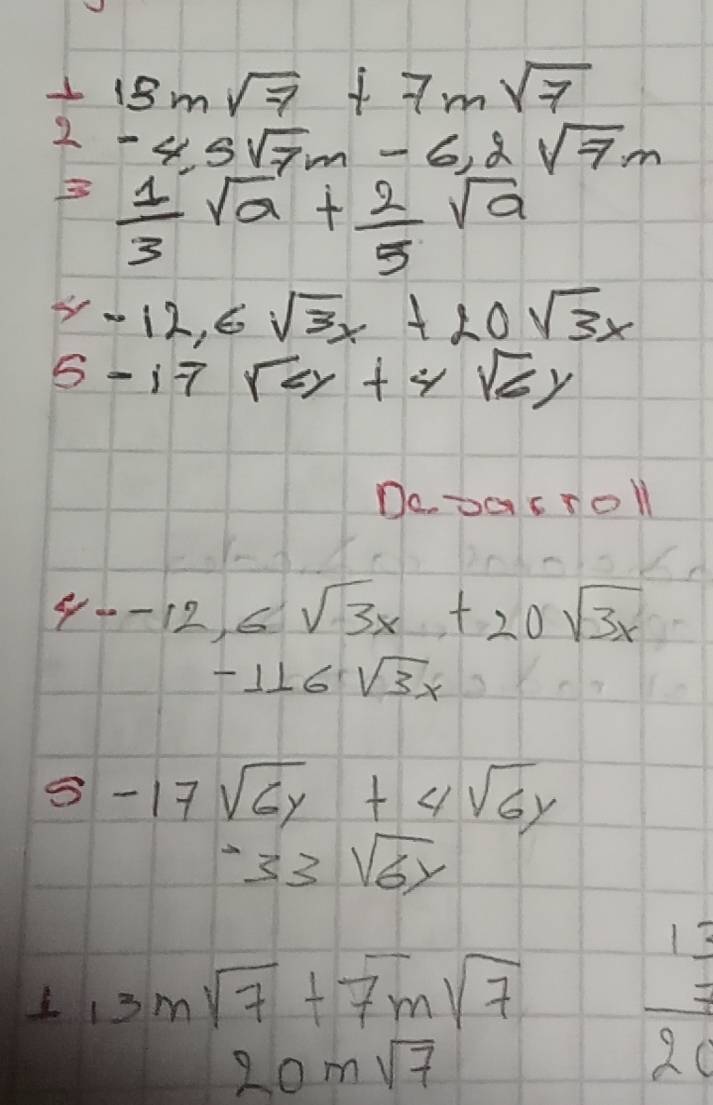 1 13m√7 + 7m√7
2 -4,5√7m - 6,2 √7m
3 1/3 √a + 2/5 √a
4 -12,6 √3x + 20√3x
5 -17 √6y + 4 √6y
4- -12,6 √3x + 20√3x
-116 √3x
5 -17√6y + 4√6y
-33 √6y
1 13m√7 + 7m√7
20m√7